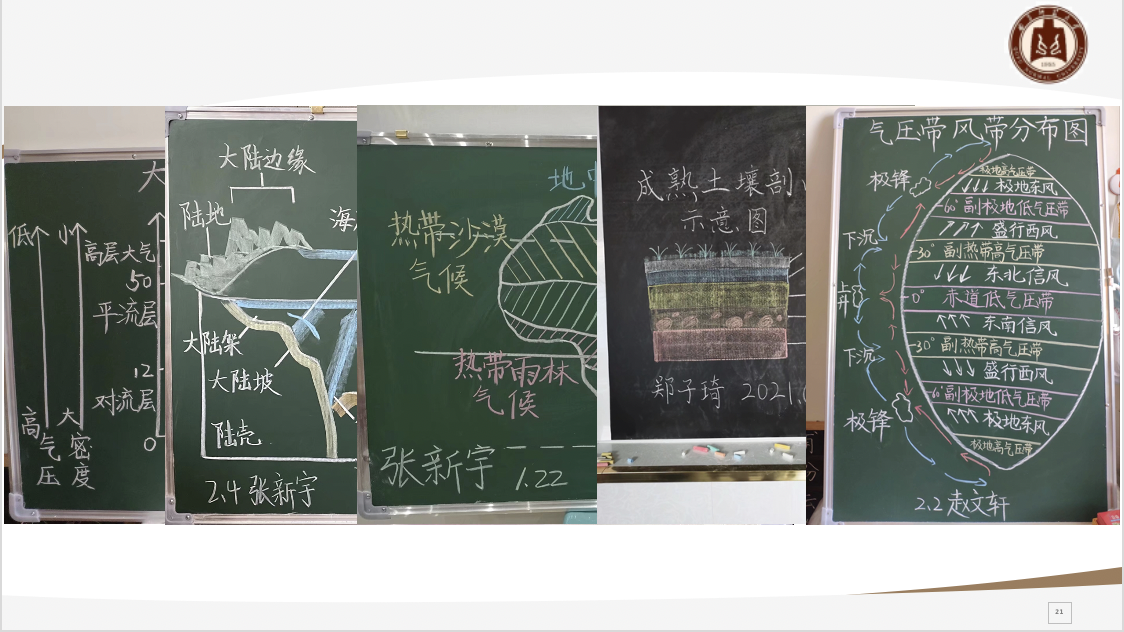 大
低
小
高层大气
50
平流层
12
对流层
0
高
气
压
大
密
度
大陆边缘
陆地
海
大陆架
大陆坡
陆壳
2.4 张新宇
地中
热带沙漠
气候
热带雨林
气候
张新宇
1.22
成熟土壤剖
示意图
郑子琦 2021.
气压带风带分布图
极锋
下沉
上升
下沉
极锋
极地高气压带
极地东风
60° 副极地低气压带
盛行西风
30° 副热带高气压带
东北信风
0° 赤道低气压带
东南信风
30° 副热带高气压带
盛行西风
60° 副极地低气压带
极地东风
极地高气压带
2.2 赵文轩
21